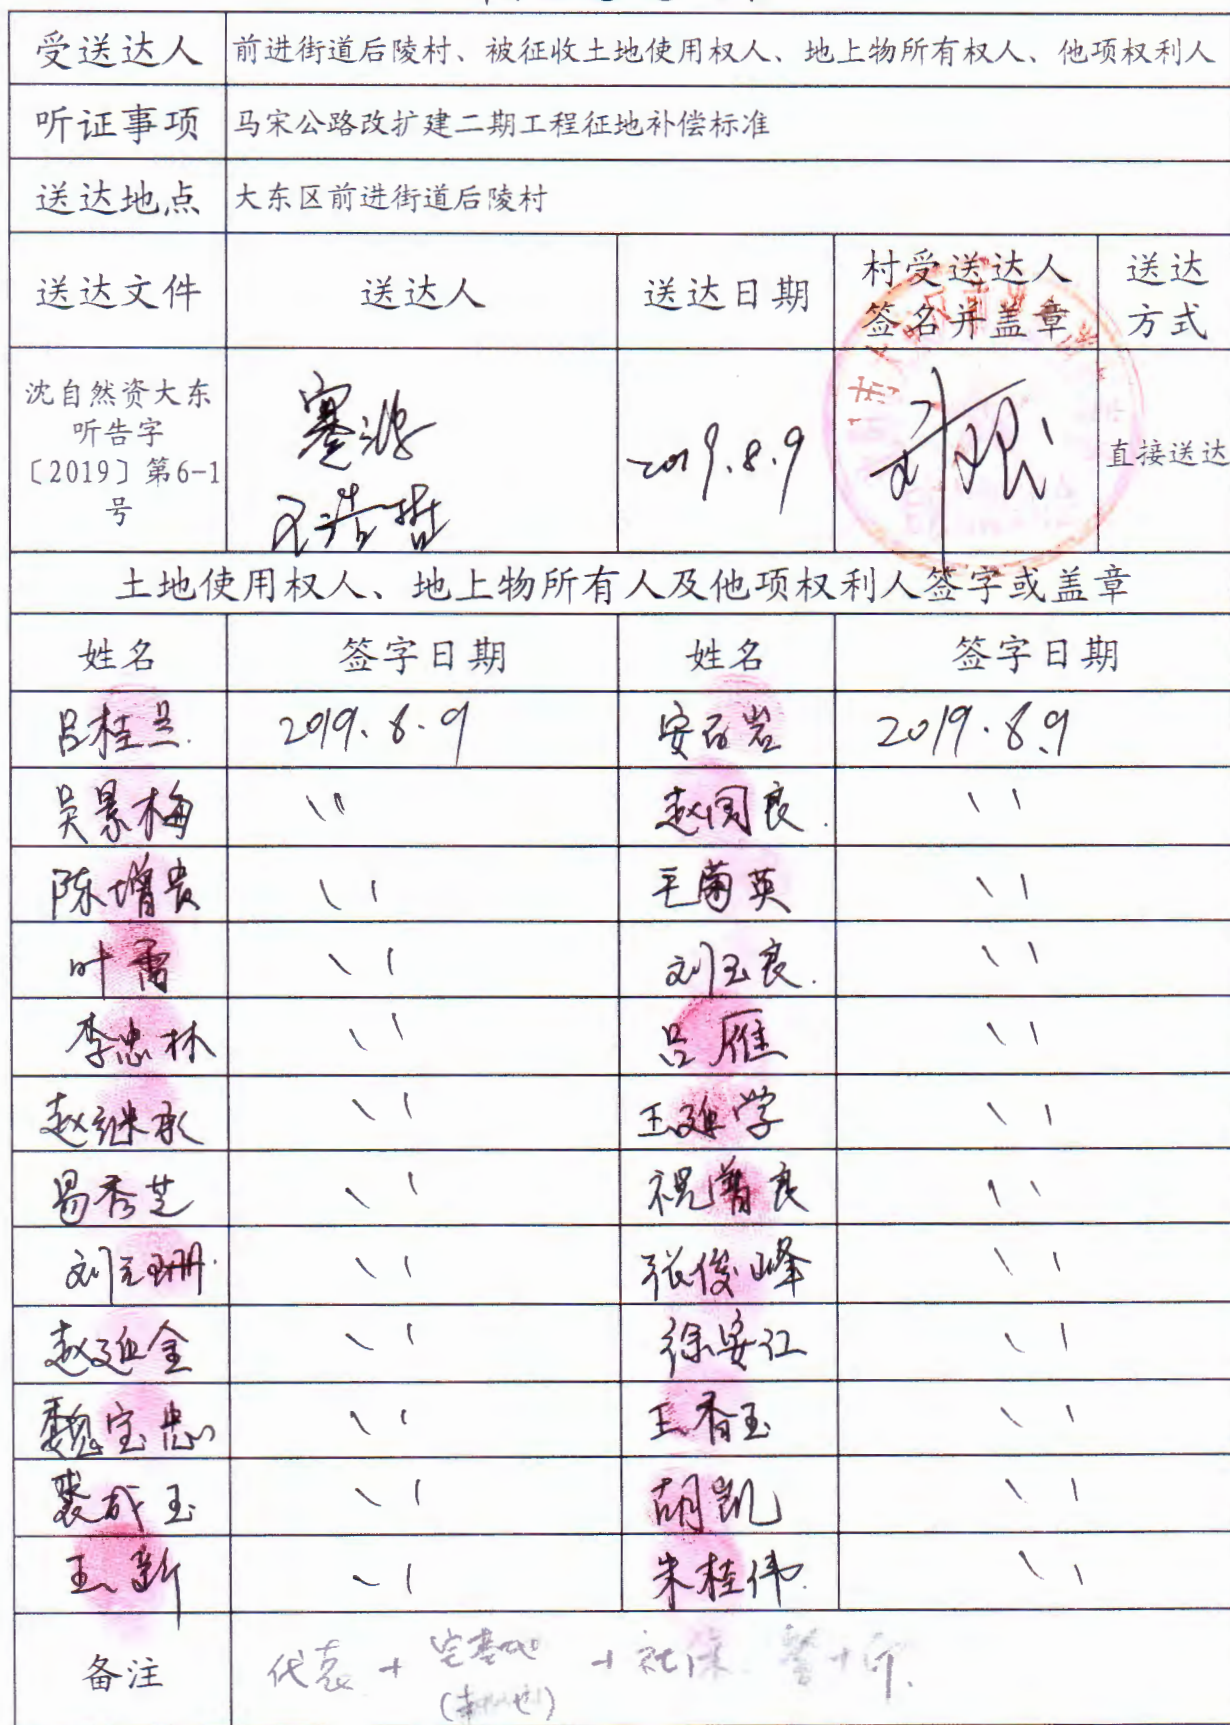 受送达人 前进街道后陵村、被征收土地使用权人、地上物所有权人、他项权利人
听证事项 马宋公路改扩建二期工程征地补偿标准
送达地点 大东区前进街道后陵村
送达文件 送达人 送达日期 村受送达人 送达
签名并盖章 方式
沈自然资大东
听告字
〔2019〕第6-1
号
2019.8.9
直接送达
土地使用权人、地上物所有人及他项权利人签字或盖章
姓名 签字日期 姓名 签字日期
吕桂兰 2019.8.9 2019.8.9
吴景梅 〃 赵国良 〃
陈增贵 〃 王菊英 〃
叶雷 〃 刘玉良 〃
李忠林 〃 吕雁 〃
赵继承 〃 王延学 〃
易秀芝 〃 祝普良 〃
刘元珊 〃 张俊峰 〃
赵延金 〃 徐安江 〃
魏宝忠 〃 王香玉 〃
裴成玉 〃 胡凯 〃
王新 〃 朱桂伟 〃
备注 代表 + 宅基地 + 社保